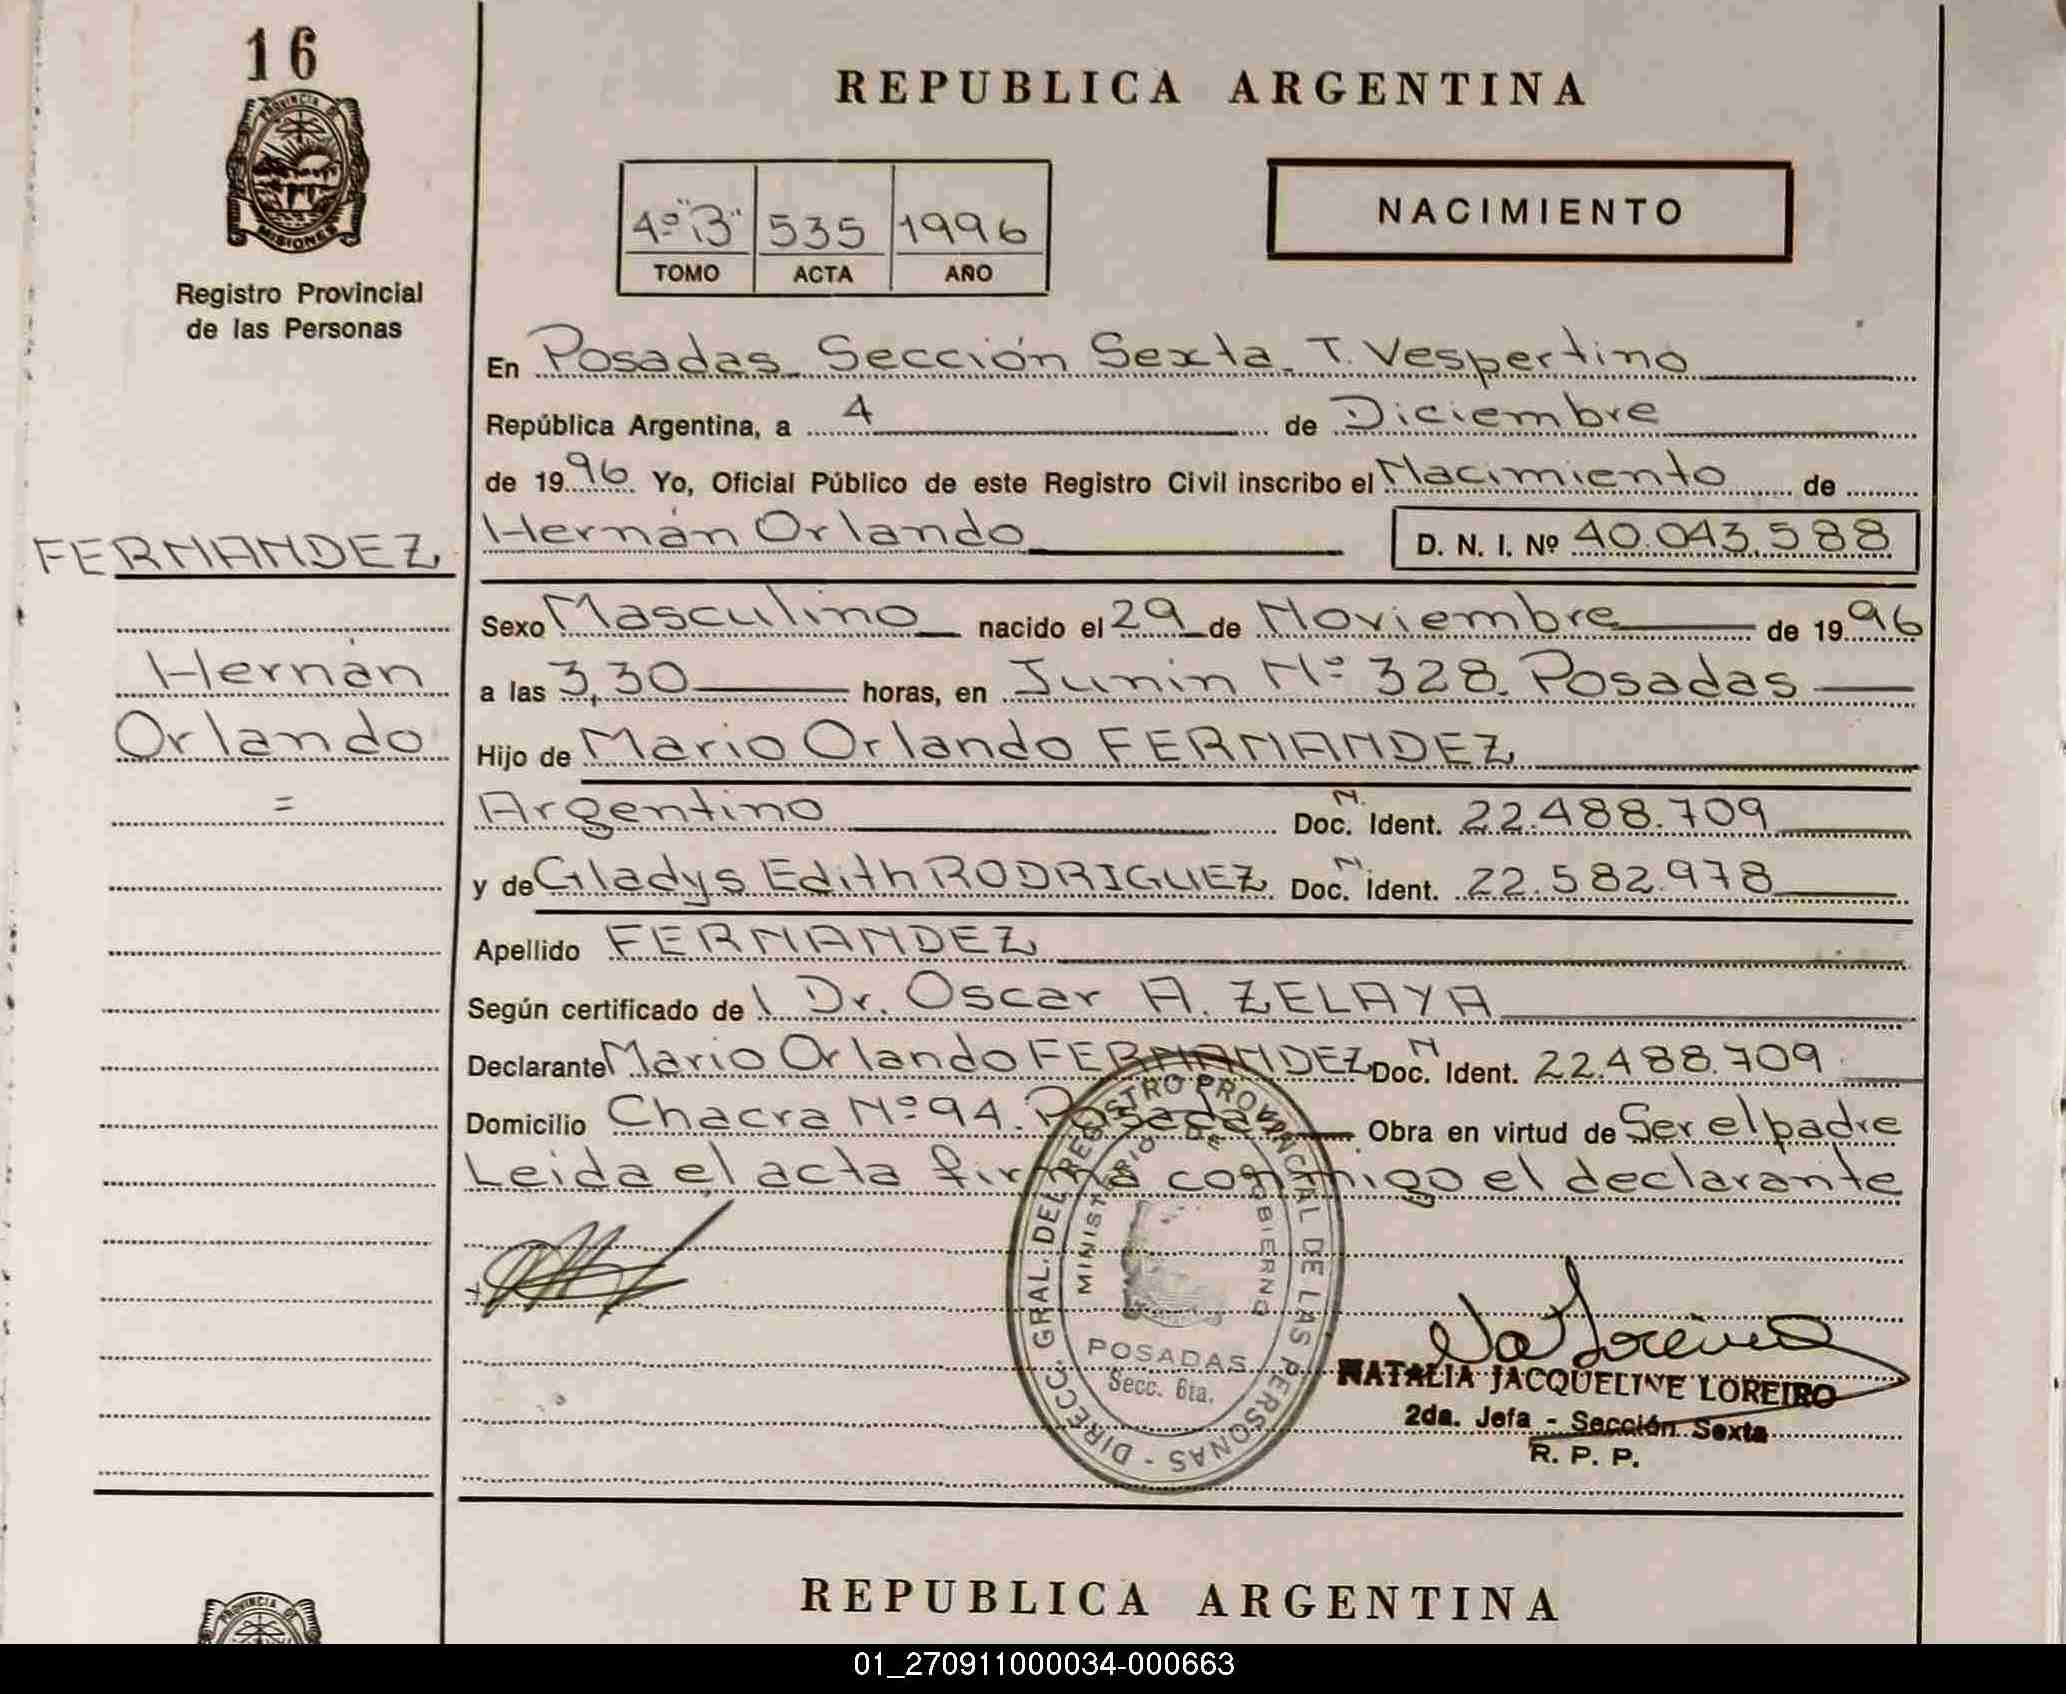 16
PROVINCIA DE
MISIONES
Registro Provincial
de las Personas
REPUBLICA ARGENTINA
4º "B" 535 1996
TOMO ACTA AÑO
NACIMIENTO
En Posadas. Sección Sexta. T. Vespertino
República Argentina, a 4 de Diciembre
de 1996 Yo, Oficial Público de este Registro Civil inscribo el Nacimiento de
Hernán Orlando D. N. I. Nº 40.043.588
FERNANDEZ
Hernán
Orlando
=
Sexo Masculino nacido el 29 de Noviembre de 1996
a las 3,30 horas, en Junín Nº 328. Posadas
Hijo de Mario Orlando FERNANDEZ
Argentino Doc. N. Ident. 22.488.709
y de Gladys Edith RODRIGUEZ Doc. N Ident. 22.582.978
Apellido FERNANDEZ
Según certificado de l Dr. Oscar A. ZELAYA
Declarante Mario Orlando FERNANDEZ Doc. N Ident. 22.488.709
Domicilio Chacra Nº 94. Posadas Obra en virtud de Ser el padre
Leida el acta firma conmigo el declarante
DIRECC. GRAL. DEL REGISTRO PROVINCIAL DE LAS PERSONAS -
MINISTERIO DE GOBIERNO
POSADAS
Secc. 6ta.
NATALIA JACQUELINE LOREIRO
2da. Jefa - Sección Sexta
R. P. P.
REPUBLICA ARGENTINA
PROVINCIA DE
01_270911000034-000663